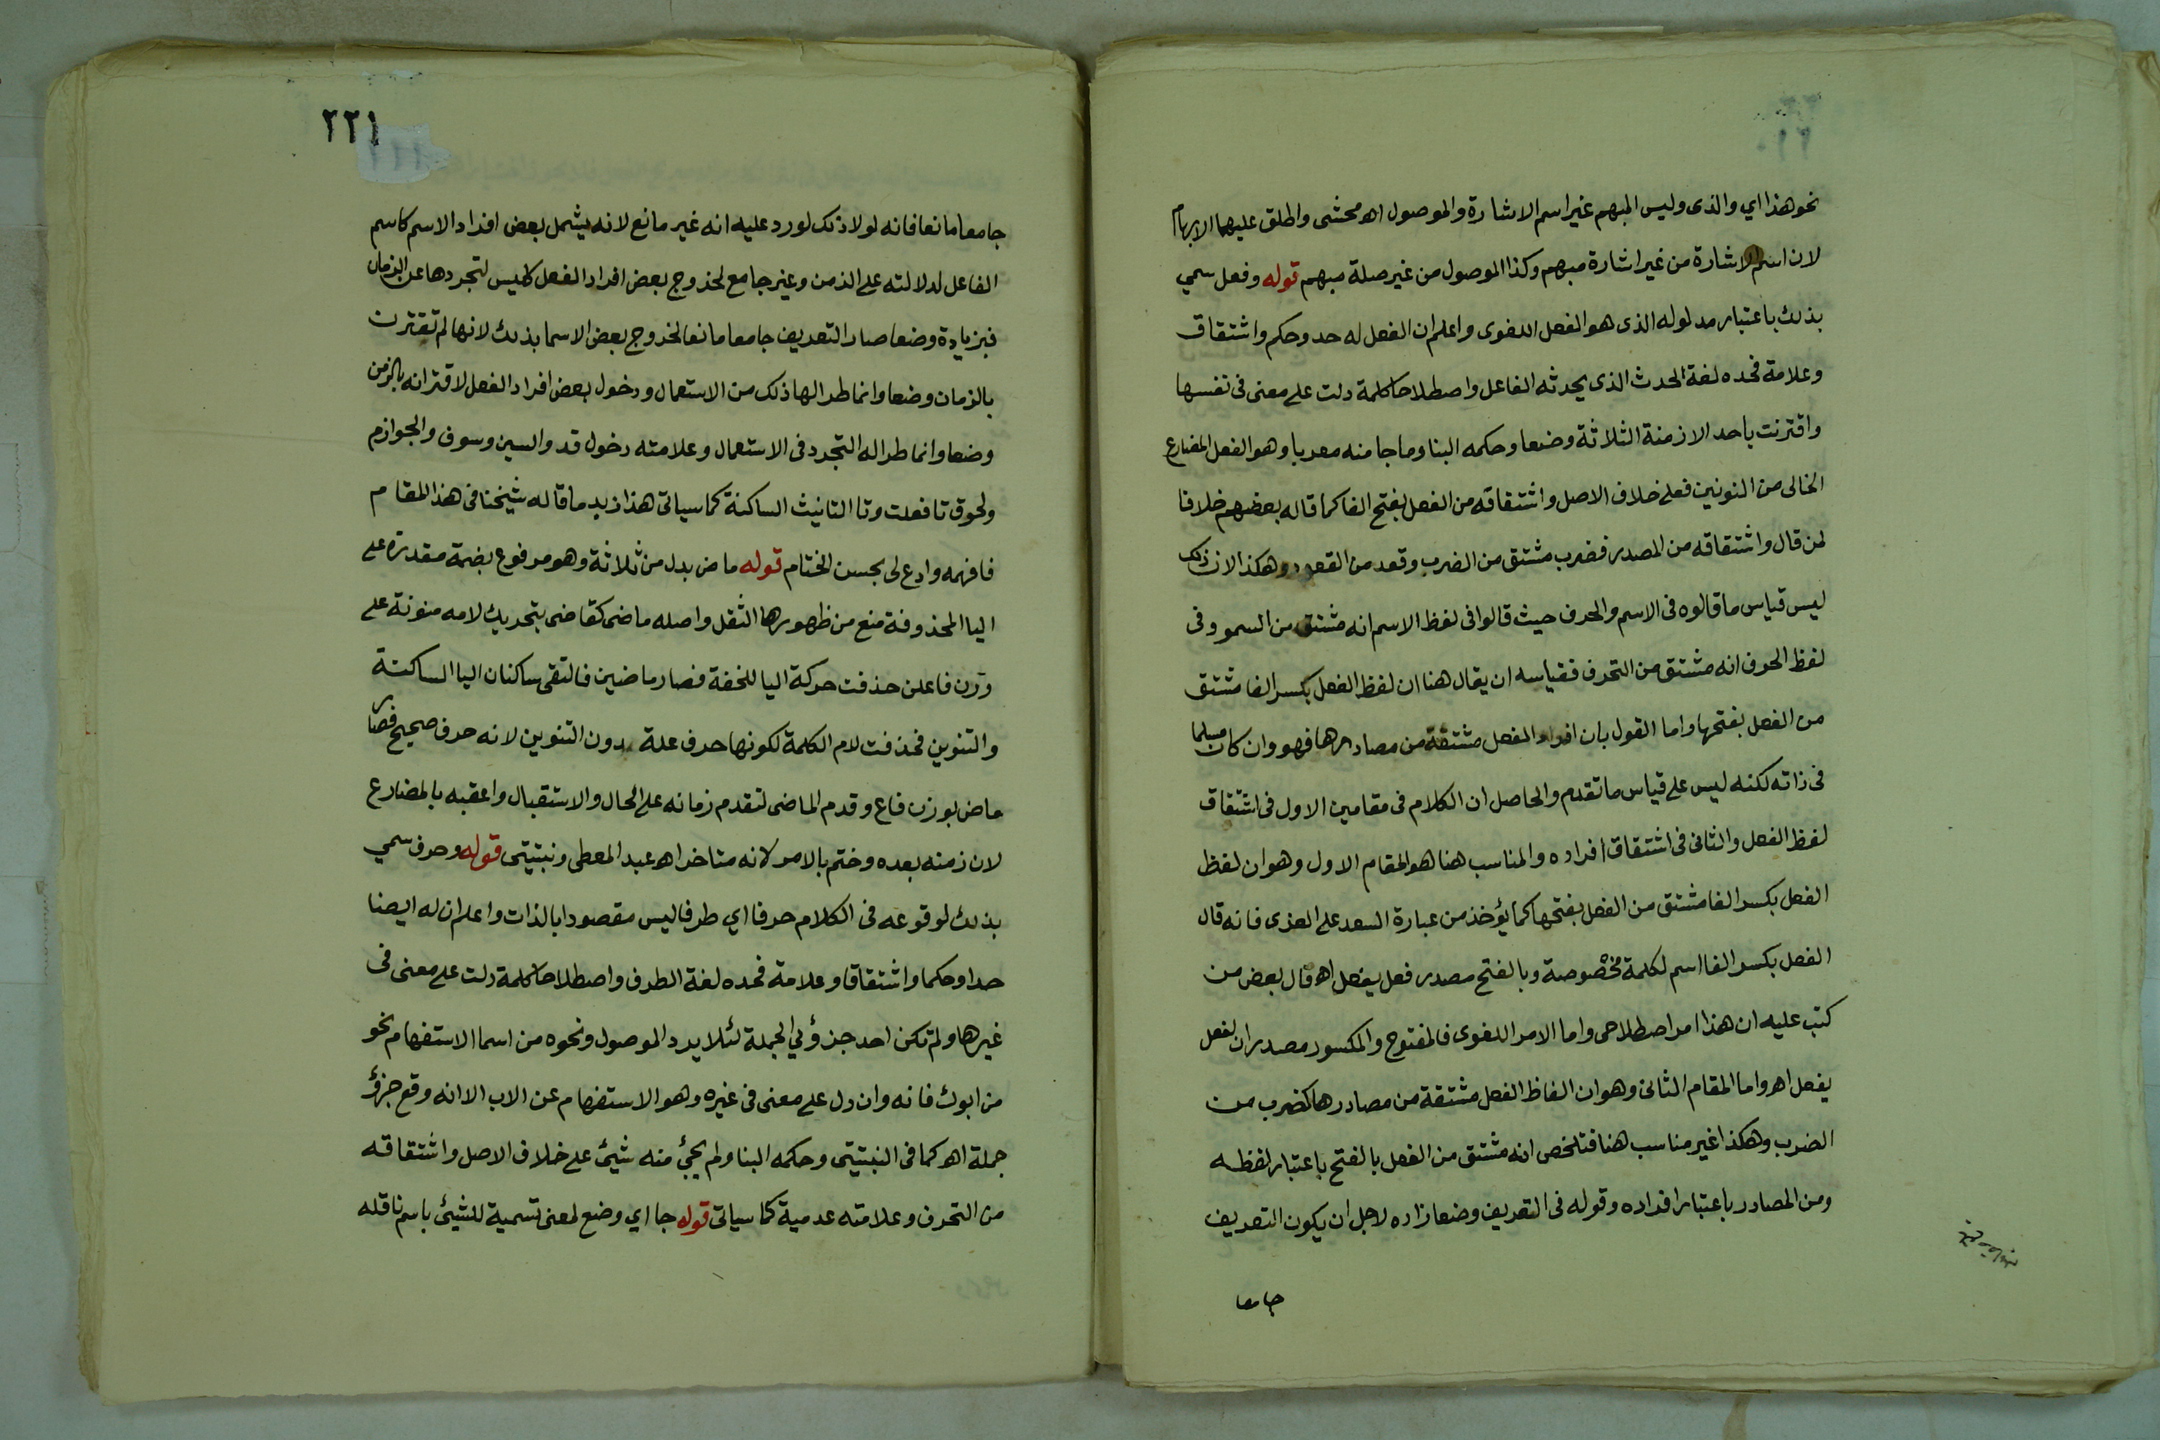 نحو هذا اي والذى وليس المبهم غير اسم الاشارة والموصول اه محشى واطلق عليهما الابهام
لان اسم الاشارة من غير اشارة مبهم وكذا الموصول من غير صلة مبهم قوله وفعل سمي
بذلك باعتبار مدلوله الذى هو الفعل اللغوى واعلم ان الفعل له حد وحكم واشتقاق
وعلامة فحده لغة الحدث الذى يحدثه الفاعل واصطلاحا كلمة دلت على معنى فى نفسها
واقترنت باحد الازمنة الثلاثة وضعا وحكمه البنا وما جا منه معربا وهو الفعل المضارع
الخالى من النونين فعلى خلاف الاصل واشتقاقه من الفعل بفتح الفا كما قاله بعضهم خلافا
لمن قال واشتقاقه من المصدر فضرب مشتق من الضرب وقعد من القعود وهكذا لان ذلك
ليس قياس ما قالوه فى الاسم والحرف حيث قالوا فى لفظ الاسم انه مشتق من السمو وفى
لفظ الحرف انه مشتق من التحرف فقياسه ان يقال هنا ان لفظ الفعل بكسر الفا مشتق
من الفعل بفتحها واما القول بان افراد الفعل مشتقة من مصادرها فهو وان كان مسلما
فى ذاته لكنه ليس على قياس ما تقدم والحاصل ان الكلام فى مقامين الاول فى اشتقاق
لفظ الفعل والثانى فى اشتقاق افراده والمناسب هنا هو المقام الاول وهو ان لفظ
الفعل بكسر الفا مشتق من الفعل بفتحها كما يؤخذ من عبارة السعد على العزى فانه قال
الفعل بكسر الفا اسم لكلمة مخصوصة وبالفتح مصدر فعل يفعل اه قال بعض من
كتب عليه ان هذا امر اصطلاحى واما الامر اللغوى فالمفتوح والمكسور مصدران لفعل
يفعل اه واما المقام الثانى وهو ان الفاظ الفعل مشتقة من مصادرها كضرب من
الضرب وهكذا غير مناسب هنا فتلخص انه مشتق من الفعل بالفتح باعتبار لفظه
ومن المصادر باعتبار افراده وقوله فى التعريف وضعا زاده لاجل ان يكون التعريف
جامعا
٢٢١
جامعا مانعا فانه لولا ذلك لورد عليه انه غير مانع لانه يشمل بعض افراد الاسم كاسم
الفاعل لدلالته على الزمن وغير جامع لخروج بعض افراد الفعل كليس لتجردها عن الزمان
فبزيادة وضعا صار التعريف جامعا مانعا لخروج بعض الاسما بذلك لانها لم تقترن
بالزمان وضعا وانما طرا لها ذلك من الاستعمال ودخول بعض افراد الفعل لاقترانه بالزمن
وضعا وانما طرا له التجرد فى الاستعمال وعلامته دخول قد والسين وسوف والجوازم
ولحوق تا فعلت وتا التانيث الساكنة كما سياتى هذا زبد ما قاله شيخنا فى هذا المقام
فافهمه وادع لى بحسن الختام قوله ماض بدل من ثلاثة وهو مرفوع بضمة مقدرة على
اليا المحذوفة منع من ظهورها الثقل واصله ماضى كقاضى بتحريك لامه منونة على
وزن فاعلن حذفت حركة اليا للخفة فصار ماضين فالتقى ساكنان اليا الساكنة
والتنوين فحذفت لام الكلمة لكونها حرف علة بدون التنوين لانه حرف صحيح فصار
ماض بوزن فاع وقدم الماضى لتقدم زمانه على الحال والاستقبال واعقبه بالمضارع
لان زمنه بعده وختم بالامر لانه متاخر اه عبد المعطى ونبتيتى قوله وحرف سمي
بذلك لوقوعه فى الكلام حرفا اي طرفا ليس مقصودا بالذات واعلم ان له ايضا
حدا وحكما واشتقاقا وعلامة فحده لغة الطرف واصطلاحا كلمة دلت على معنى فى
غيرها ولم تكن احد جزؤي الجملة لئلا يرد الموصول ونحوه من اسما الاستفهام نحو
من ابوك فانه وان دل على معنى فى غيره وهو الاستفهام عن الاب الا انه وقع جزؤ
جملة اه كما فى النبتيتى وحكمه البنا ولم يجئ منه شيئ على خلاف الاصل واشتقاقه
من التحرف وعلامته عدمية كما سياتى قوله جا اي وضع لمعنى تسمية للشيئ باسم ناقله